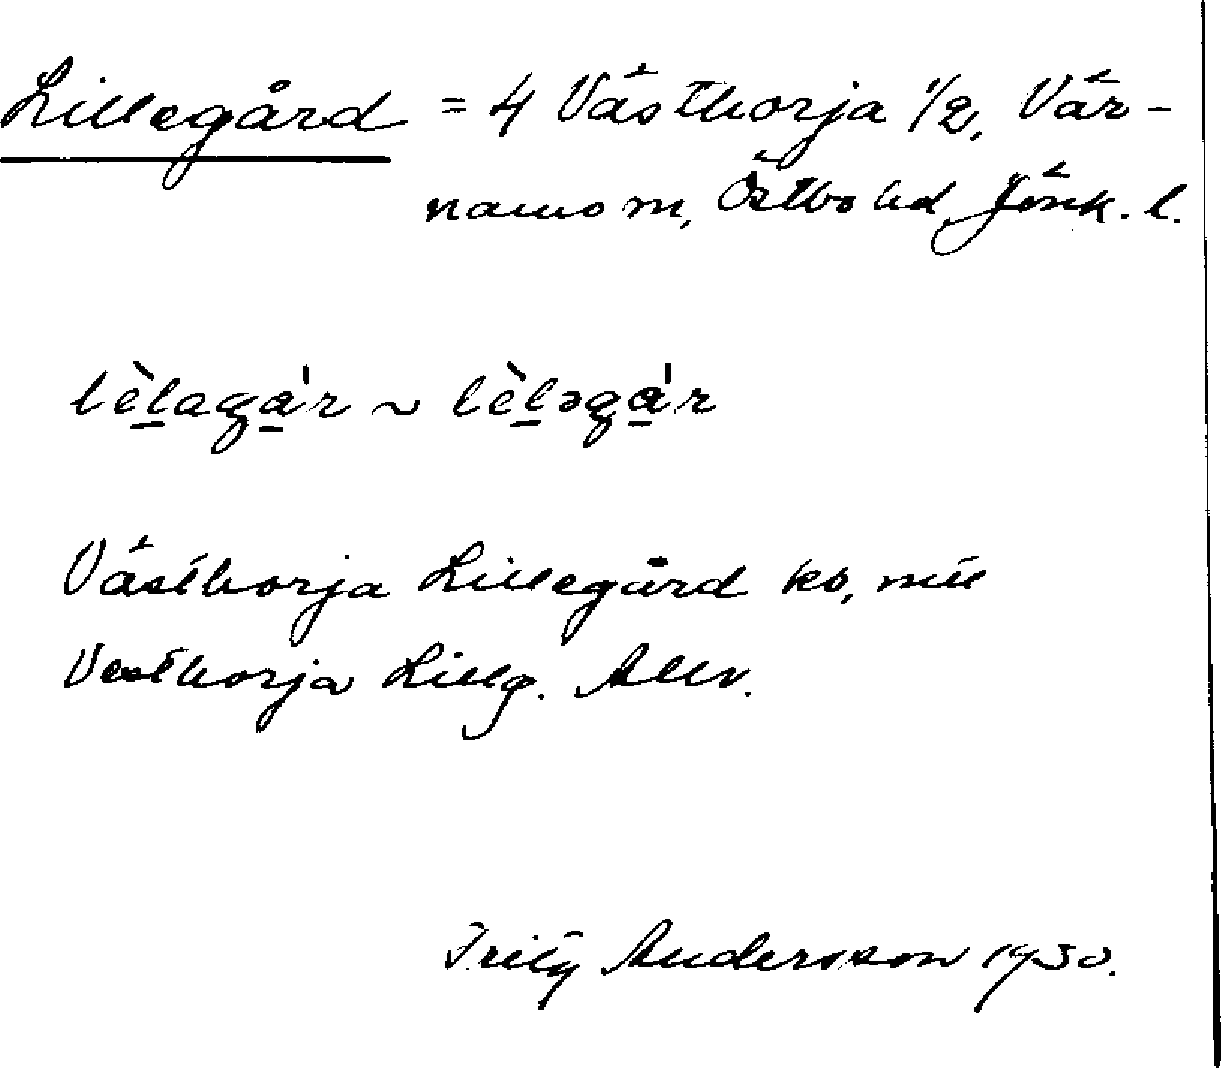 Lillegård = 4 Västhorja 1/2, Vär-
namo m, Östbo hd, Jönk. l.
lèlagá'r ~ lèləgá'r
Västhorja Lillegård kb, mil
Vesthorja Lillg. Allv.
Fritz Andersson 1930.